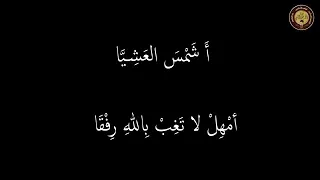 أَ شَمْسَ العَشِيَّا
أمْهِلْ لا تَغِبْ بِاللهِ رِفْقَا